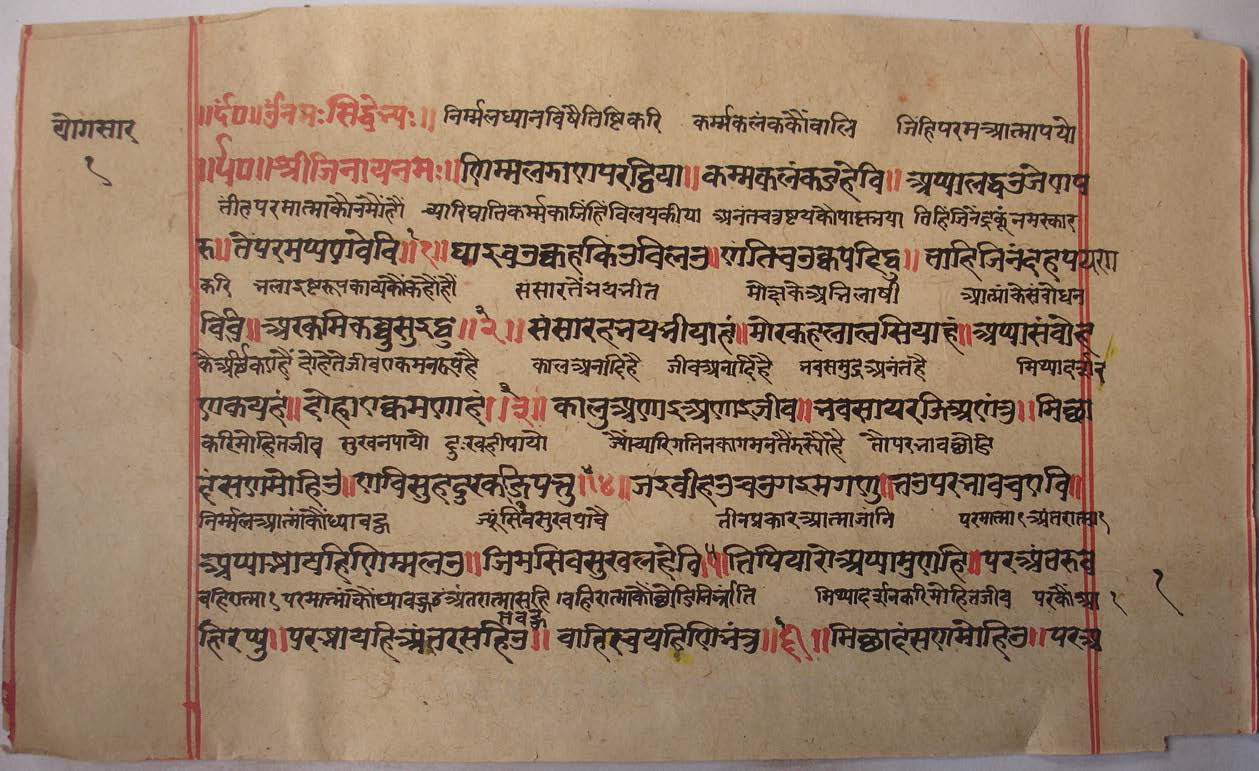 योगसार
१
॥र्द०॥ उँनमः सिद्धेभ्यः॥ निर्म्मलध्यानविषैतिष्टिकरि कर्म्मकलंककौंवालि जिहिपरमआत्मापयो
॥र्द०॥ श्रीजिनायनमः॥ णिम्मलझाणपरट्ठिया॥ कम्मकलंकडहेवि॥ अप्पालद्धउजेणप
तीहपरमात्माकौनमौंहौं च्यारिघातिकर्म्मकाजिंहिंविलयकीया अनंतचतुष्टयकौपाप्तभया तिहिंजिनेंद्रकूंनमस्कार
रु॥ तेपरमप्पणवेवि॥१॥ घाइचउक्कहकिउविलउ॥ णंतिचउक्कपदिट्ठु॥ ताहिजिनंदहपयण
करि भलाइष्टरूपकाव्यकौंकहौंहौं संसारतेंभयभीत मोक्षकेअभिलाषी आत्माकेसंबोधन
विवि॥ अरकमिकव्वुसुइट्ठु॥२॥ संसारहभयभीयाहं॥ मोरकहलालसियाहं॥ अप्पासंबोह
कालअनादिहै जीवअनादिहै भवसमुद्रअनंतहै मिथ्यादर्शन
णकयहं॥ दोहाएक्कमणाहं॥३॥ कालुअणाइअणाइजीव॥ भवसायरजिअणंतु॥ मिछा
करिमोहितजीव सुखनपायो दुःखहीपायो ज्योंच्यारिगतिनकागमनतें तौपरभावछौडि
दंसणमोहिउ॥ णविसुहदुरकजिपत्तु॥४॥ जइवीहउचउगइमगणु॥ तउपरभावचएवि॥
निर्म्मलआत्माकौंध्यावहु ज्यूंसिवसुखपावै तीनप्रकारआत्माजांनि परमात्मा१अंतरात्मा१
अप्पाझायहिणिम्मलउ॥ जिमसिवसुखलहेवि॥५॥ तिपियारोअप्पामुणहि॥ परअंतरुब
बहिरात्मा१ परमात्माकौंध्यावहु अंतरात्मासहि बहिरात्माकौंछोडि मिथ्यादर्शनकरिमोहितजीव परकौंआ१
१
हिरप्पु॥ परझायहिअंतरसहिउ॥ वाहिरुचयहिणिभंतु॥६॥ मिछादंसणमोहिउ॥ परअ